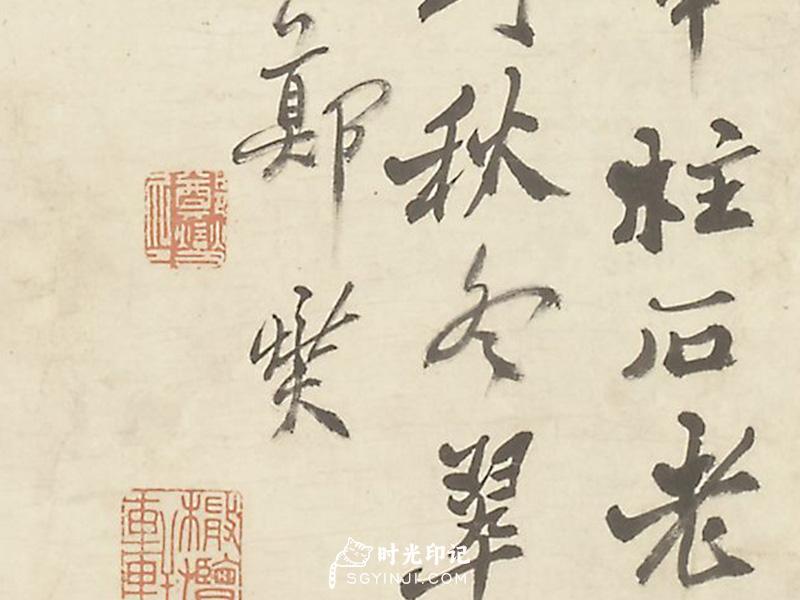 柱石老
秋冬翠
鄭燮
鄭燮
时光印记
SGYINJI.COM